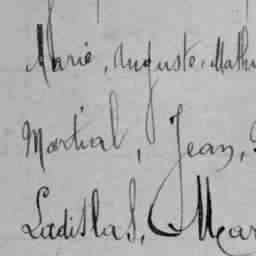 Marie, Auguste, Math
Martial, Jean,
Ladislas, Mar